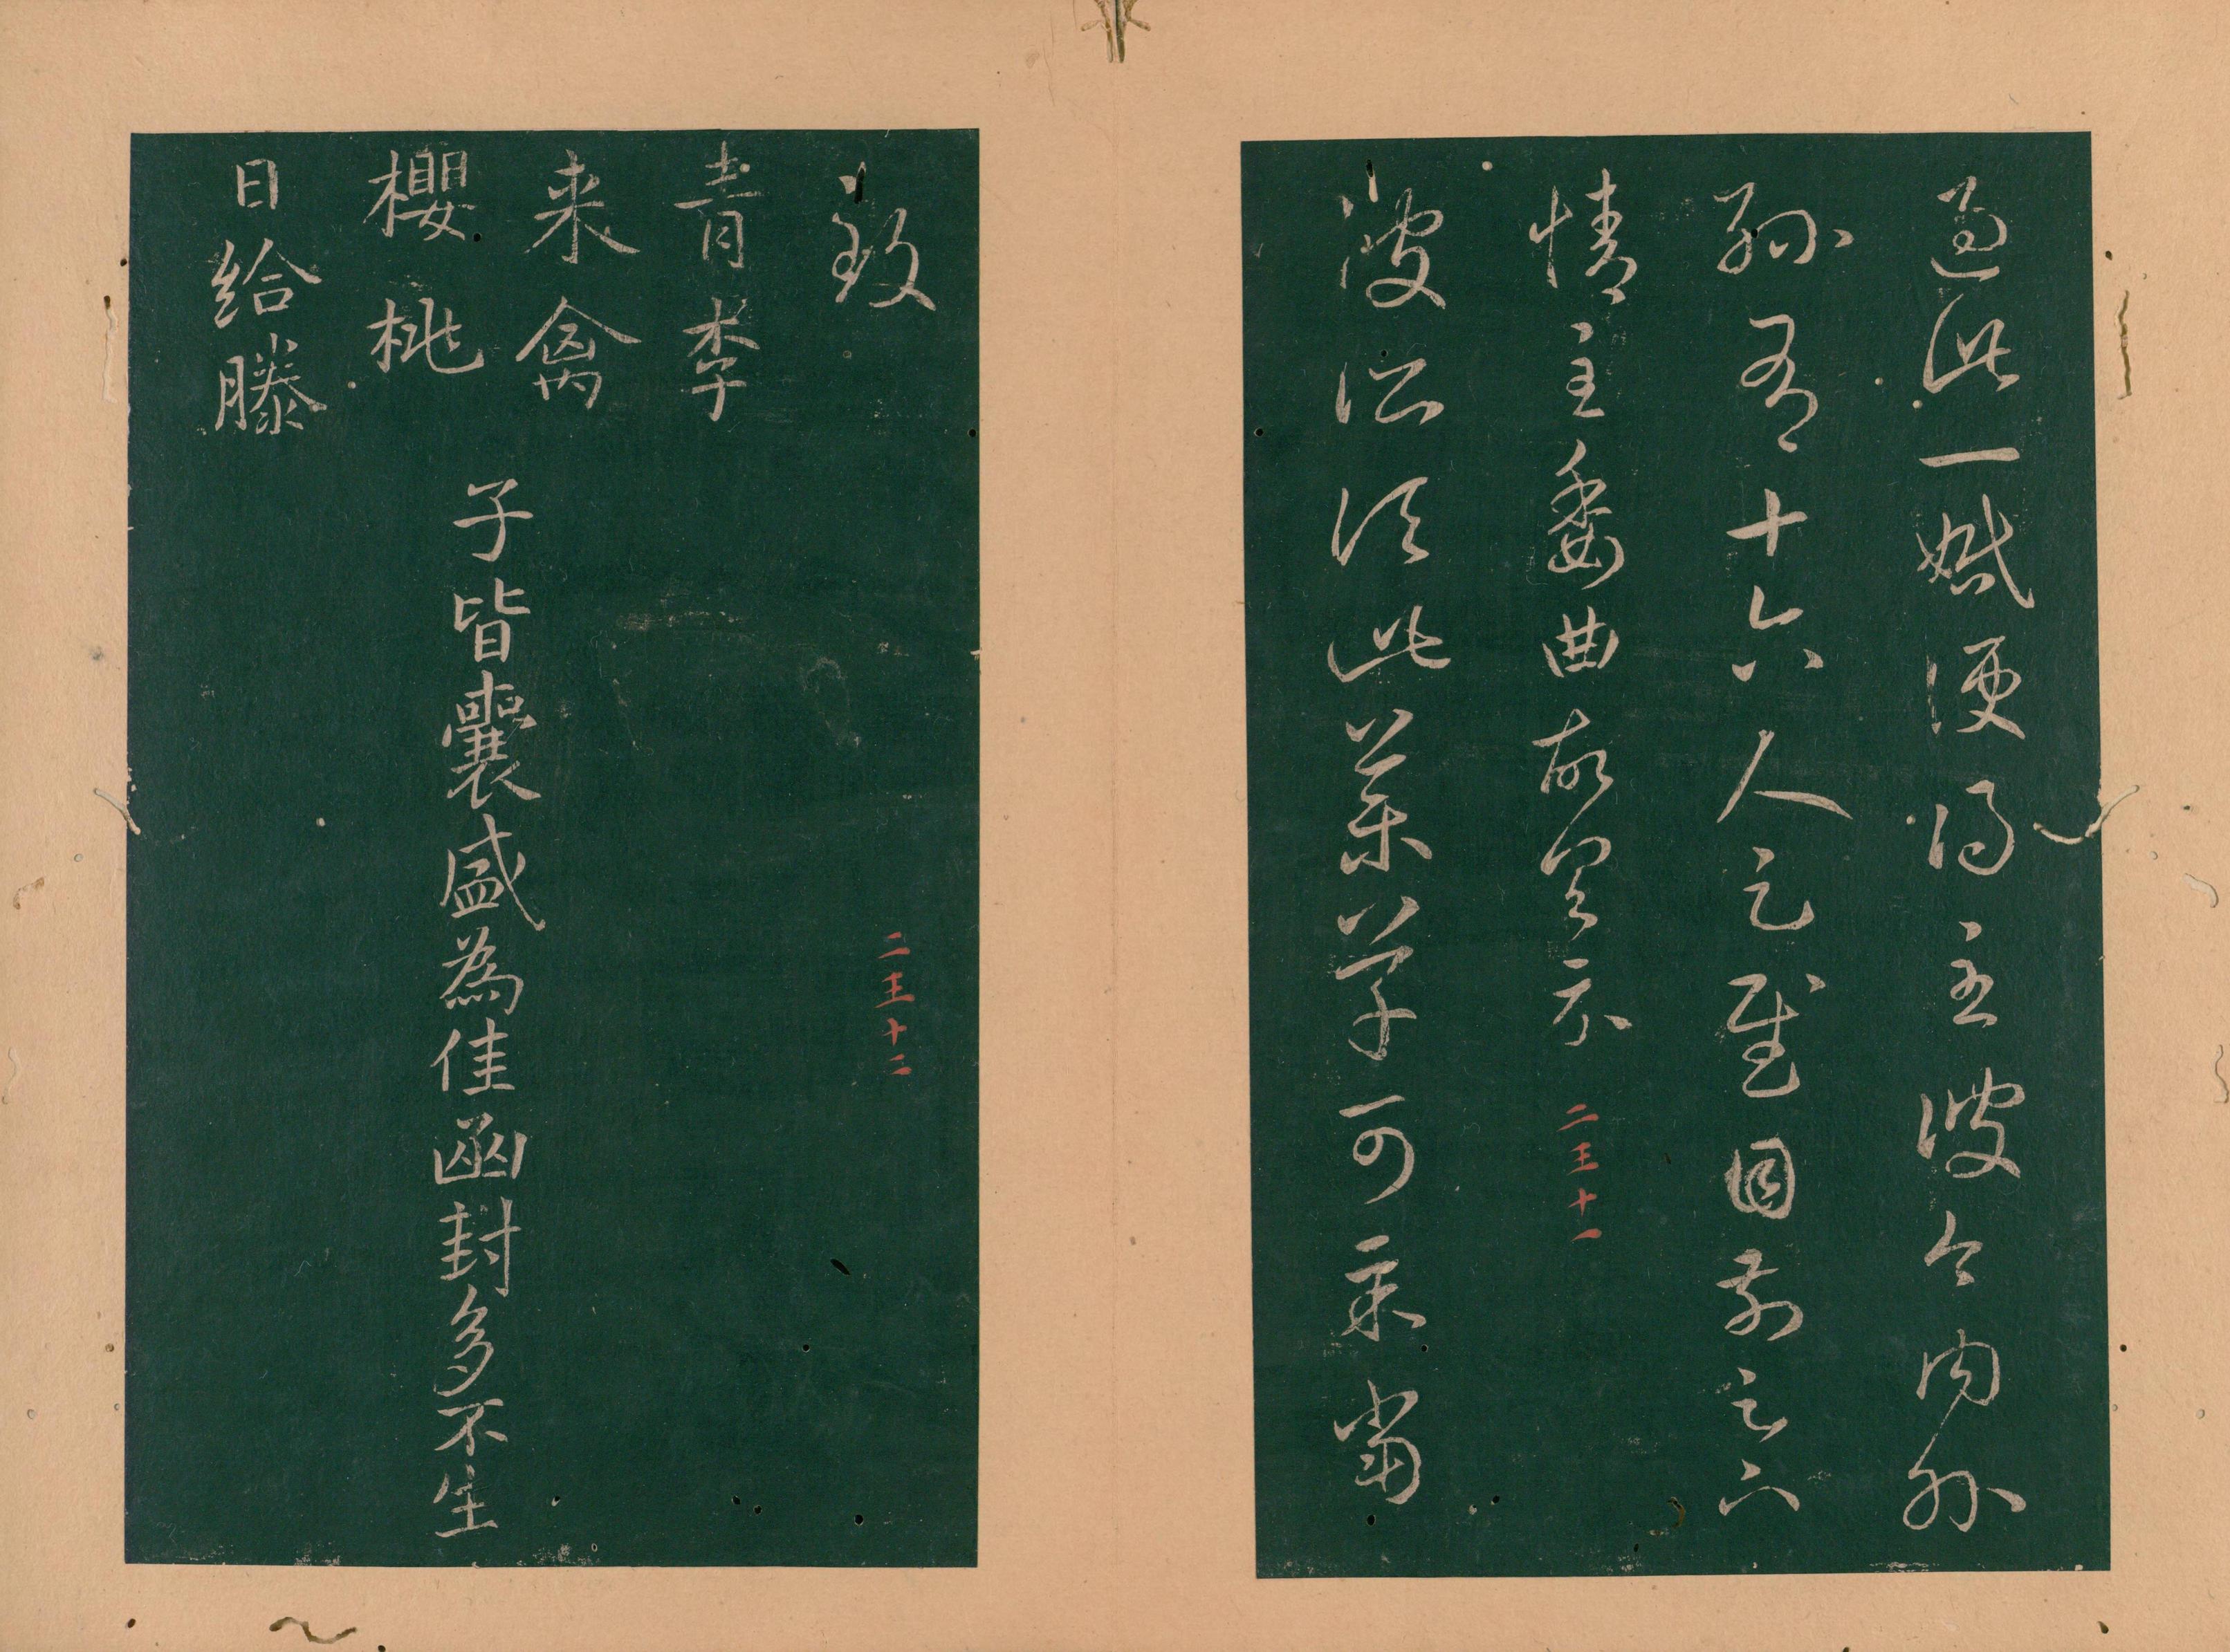 過此一婚便得至彼今內外
孫有十六人足慰目前足下
情至委曲故具示
二王十一
彼所須此藥草可示當
致
二王十二
青李
来禽
櫻桃
日給滕
子皆囊盛為佳函封多不生